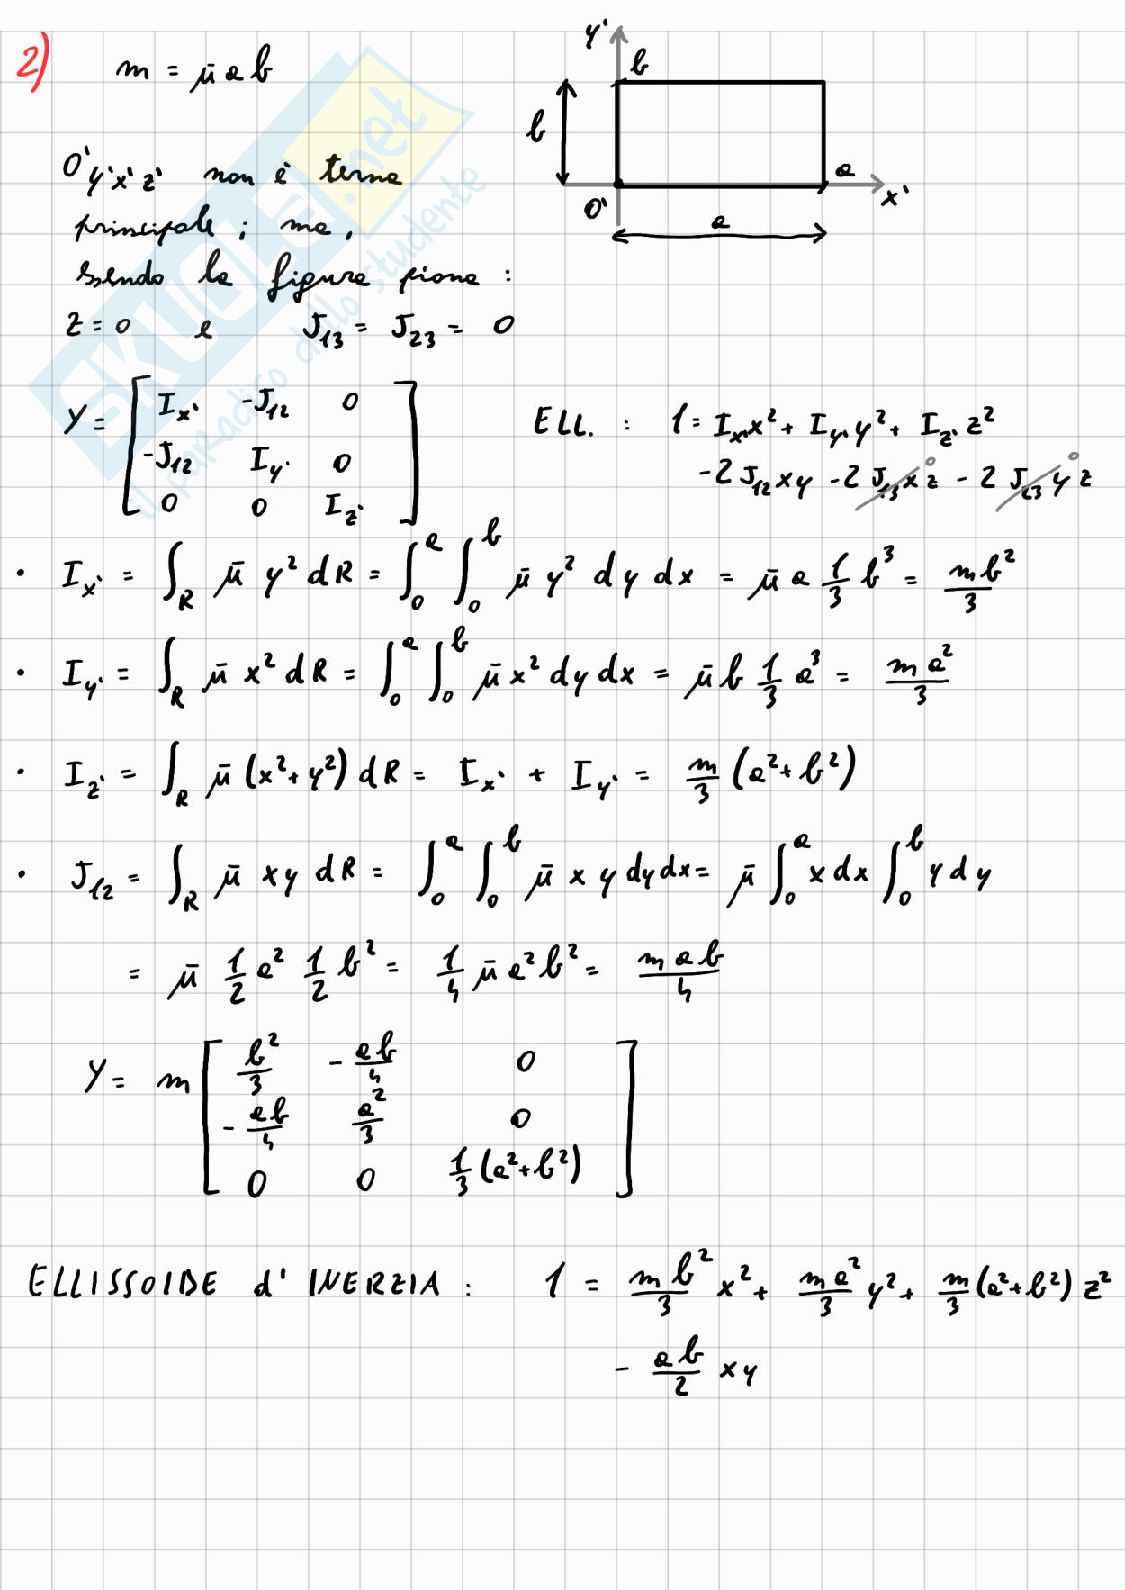 2)
m = μ̄ a b
y'
b
b
a
x'
O'
a
O'y'x'z' non è terna
principale; ma,
essendo la figura piana:
z = 0 e J₁₃ = J₂₃ = 0
Y = [ I_x' -J₁₂ 0
-J₁₂ I_y' 0
0 0 I_z' ]
ELL. : 1 = I_x' x² + I_y' y² + I_z' z²
-2 J₁₂ xy - 2 J₁₃ xz - 2 J₂₃ yz
0 0
• I_x' = ∫_R μ̄ y² dR = ∫₀^a ∫₀^b μ̄ y² dy dx = μ̄ a 1/3 b³ = mb²/3
• I_y' = ∫_R μ̄ x² dR = ∫₀^a ∫₀^b μ̄ x² dy dx = μ̄ b 1/3 a³ = ma²/3
• I_z' = ∫_R μ̄ (x² + y²) dR = I_x' + I_y' = m/3 (a² + b²)
• J₁₂ = ∫_R μ̄ xy dR = ∫₀^a ∫₀^b μ̄ x y dy dx = μ̄ ∫₀^a x dx ∫₀^b y dy
= μ̄ 1/2 a² 1/2 b² = 1/4 μ̄ a² b² = mab/4
Y = m [ b²/3 -ab/4 0
-ab/4 a²/3 0
0 0 1/3 (a² + b²) ]
ELLISSOIDE d' INERZIA : 1 = mb²/3 x² + ma²/3 y² + m/3 (a² + b²) z²
- ab/2 xy
SKUOLA.net
il paradiso dello studente